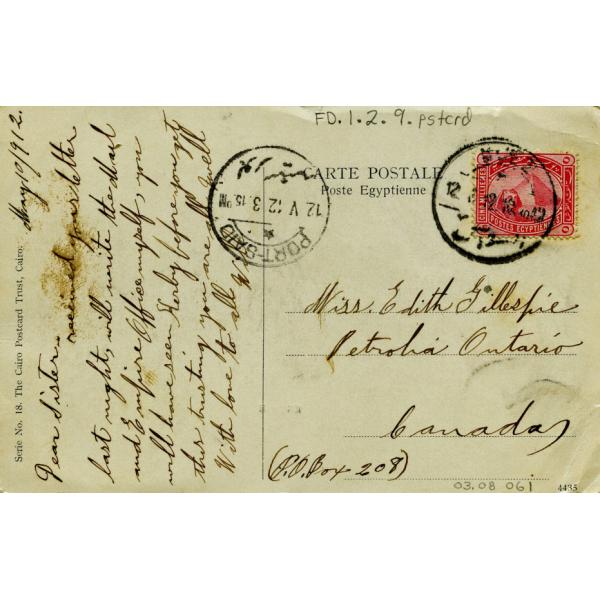 FD.1.2.9.pstcrd
CARTE POSTALE
Poste Egyptienne
POSTES EGYPTIENNES
PORT-SAID
12 V 12 3.15 PM
May 10/912.
Dear Sister.
received your letter
last night, will write the Mail
and Empire Office myself, you
will have seen Derby before you get
this trusting you are all well
With love to all
Miss. Edith Gillespie
Petrolia Ontario
Canada
(P.O. Box 208)
03.08 061
4435
Serie No. 18. The Cairo Postcard Trust, Cairo.